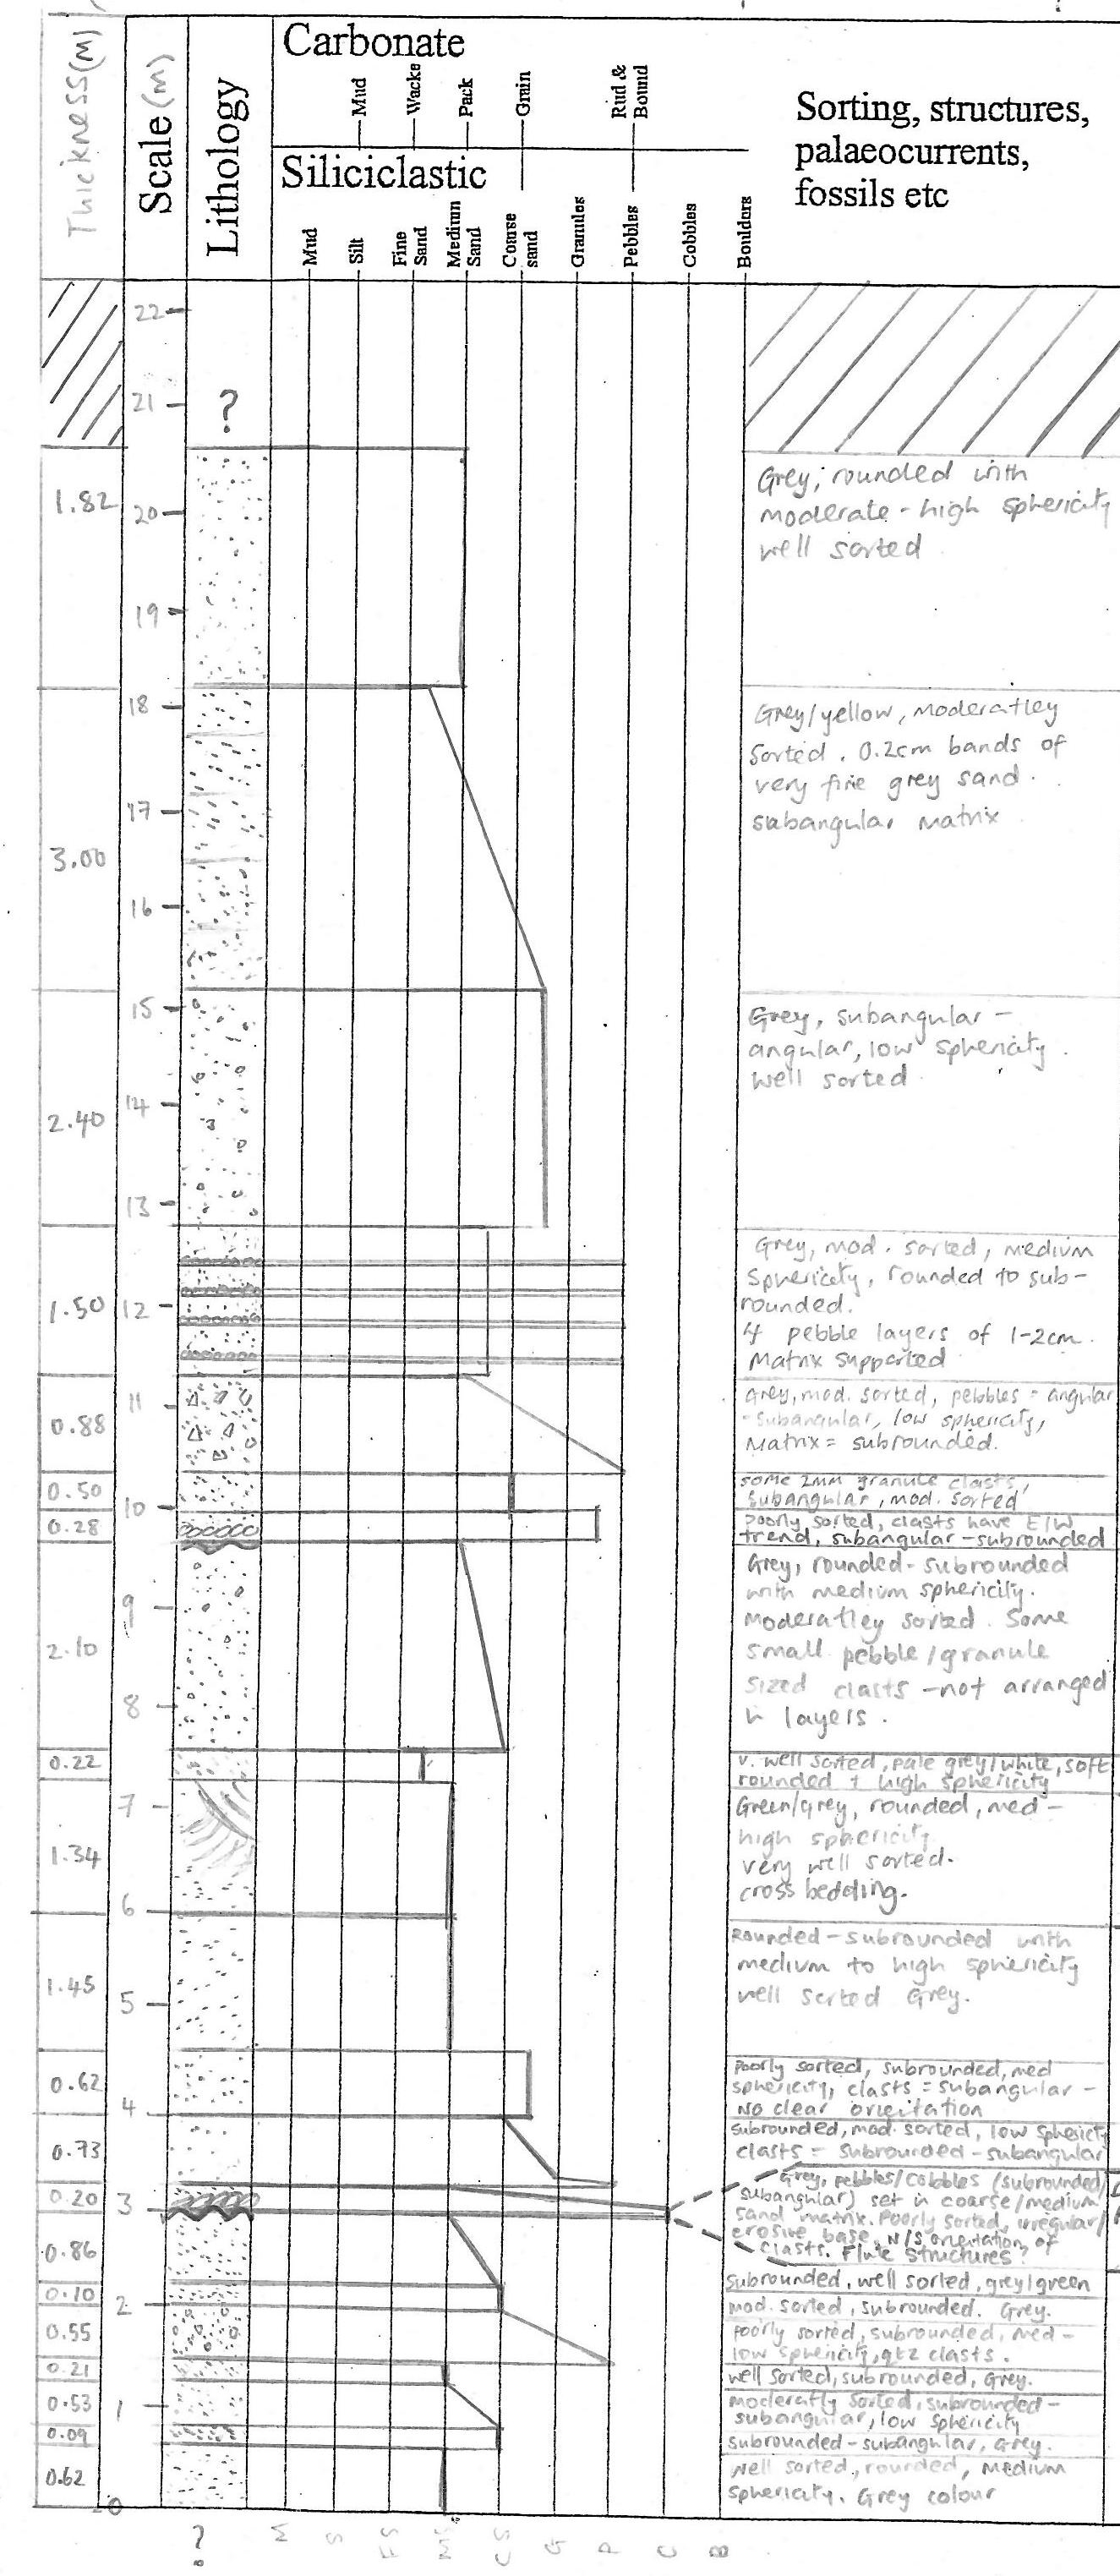 Thickness(M)
Scale (m)
Lithology
Carbonate
Mud
Wacke
Pack
Grain
Rud &
Bound
Siliciclastic
Mud
Silt
Fine
Sand
Medium
Sand
Coarse
sand
Granules
Pebbles
Cobbles
Boulders
Sorting, structures,
palaeocurrents,
fossils etc
22
21
?
1.82
20
19
Grey, rounded with
moderate - high sphericity
well sorted
18
17
3.00
16
Grey/yellow, moderatley
sorted. 0.2cm bands of
very fine grey sand.
subangular matrix
15
14
2.40
13
Grey, subangular -
angular, low sphericity.
well sorted
1.50
12
Grey, mod. sorted, medium
sphericity, rounded to sub-
rounded.
4 pebble layers of 1-2cm.
Matrix supported
11
0.88
Grey, mod. sorted, pebbles = angular
-subangular, low sphericity,
Matrix = subrounded.
0.50
10
some 2mm granule clasts,
subangular, mod. sorted
0.28
poorly sorted, clasts have E/W
trend, subangular-subrounded
9
2.10
8
Grey, rounded-subrounded
with medium sphericity.
Moderatley sorted. Some
small pebble/granule
sized clasts -not arranged
in layers.
0.22
v. well sorted, pale grey/white, soft
rounded + high sphericity
7
1.34
6
Green/grey, rounded, med-
high sphericity
very well sorted.
cross bedding.
1.45
5
Rounded-subrounded with
medium to high sphericity
well sorted Grey.
0.62
4
poorly sorted, subrounded, med
sphericity, clasts = subangular -
No clear orientation
0.73
subrounded, mod. sorted, low sphericity
clasts = subrounded-subangular
0.20
3
Grey, pebbles/cobbles (subrounded/
subangular) set in coarse/medium
sand matrix. Poorly sorted, irregular/
erosive base, N/S orientation of
clasts. Flute structures?
0.86
subrounded, well sorted, grey/green
0.10
2
mod. sorted, subrounded. Grey.
0.55
poorly sorted, subrounded, med-
low sphericity, qtz clasts.
0.21
well sorted, subrounded, Grey.
0.53
1
moderatly sorted, subrounded-
subangular, low sphericity
0.09
subrounded-subangular, Grey.
0.62
0
well sorted, rounded, medium
sphericity. Grey colour
?
M
S
FS
MS
CS
G
P
C
B